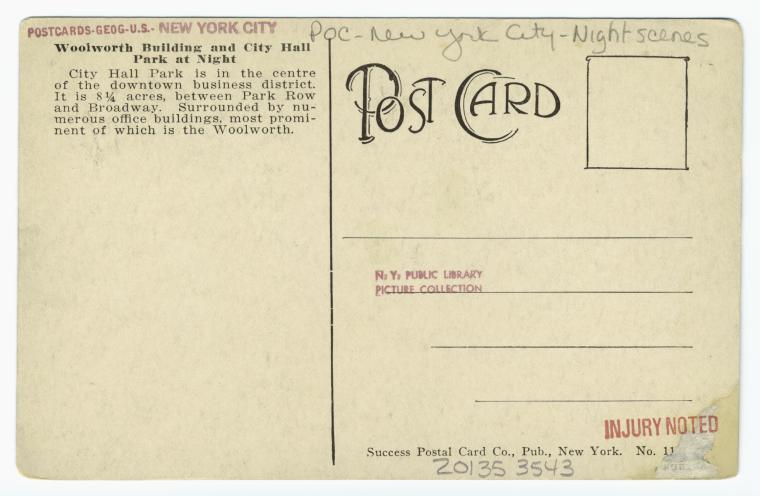 POSTCARDS-GEOG-U.S.- NEW YORK CITY
POC-New York City-Night scenes
Woolworth Building and City Hall
Park at Night
City Hall Park is in the centre
of the downtown business district.
It is 8¼ acres, between Park Row
and Broadway. Surrounded by nu-
merous office buildings, most promi-
nent of which is the Woolworth.
POST CARD
N. Y. PUBLIC LIBRARY
PICTURE COLLECTION
INJURY NOTED
Success Postal Card Co., Pub., New York. No. 11
20135 3543